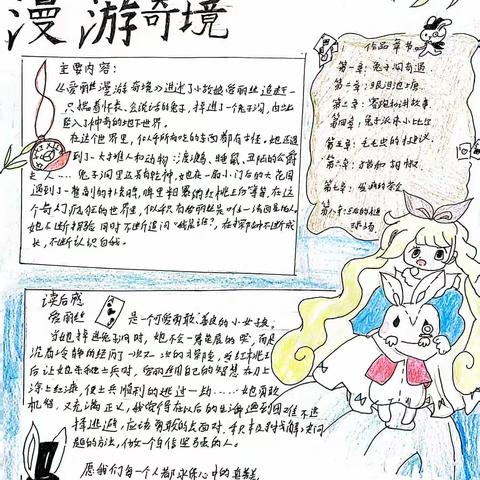 漫游奇境
主要内容:
《爱丽丝漫游奇境》讲述了小姑娘爱丽丝追赶一
只揣着怀表、会说话的兔子,掉进了一个兔子洞,由此
坠入了神奇的地下世界。
在这个世界里,似乎所有吃的东西都有古怪。她还遇
到了一大堆人和动物:渡渡鸟、睡鼠、
兔子洞里还另有乾坤,她在一扇小门后的大花园
遇到了一整副的扑克牌,牌里粗暴的红桃王后等等。在这
个奇幻疯狂的世界里,似乎只有爱丽丝是唯一清醒的人。
她不断探险,同时不断追问“我是谁?”,在探险中不断成
长,不断认识自我。
作品章节
第一章:兔子洞奇遇
第二章:眼泪池塘
第四章:兔子派来小比尔
第五章:毛毛虫的建议
第六章:猪和胡椒
第七章:发疯的茶会
第八章:王后的槌
球场
读后感
爱丽丝是一个可爱勇敢、善良的小女孩,
当她掉进兔子洞时,她不会一味地哭,而是
沉着冷静的经历了一次又一次的探险,
后让她杀和士兵时,爱丽丝用自己的智慧
涂上红漆,使士兵顺利的逃过一劫……她勇敢
机智,又充满正义,我觉得在以后的生活遇到困难不选
择逃避,应该勇敢的去面对,积极寻找解决问
题的方法,做一个自信坚强的人。
愿我们每一个人都来练心中的真